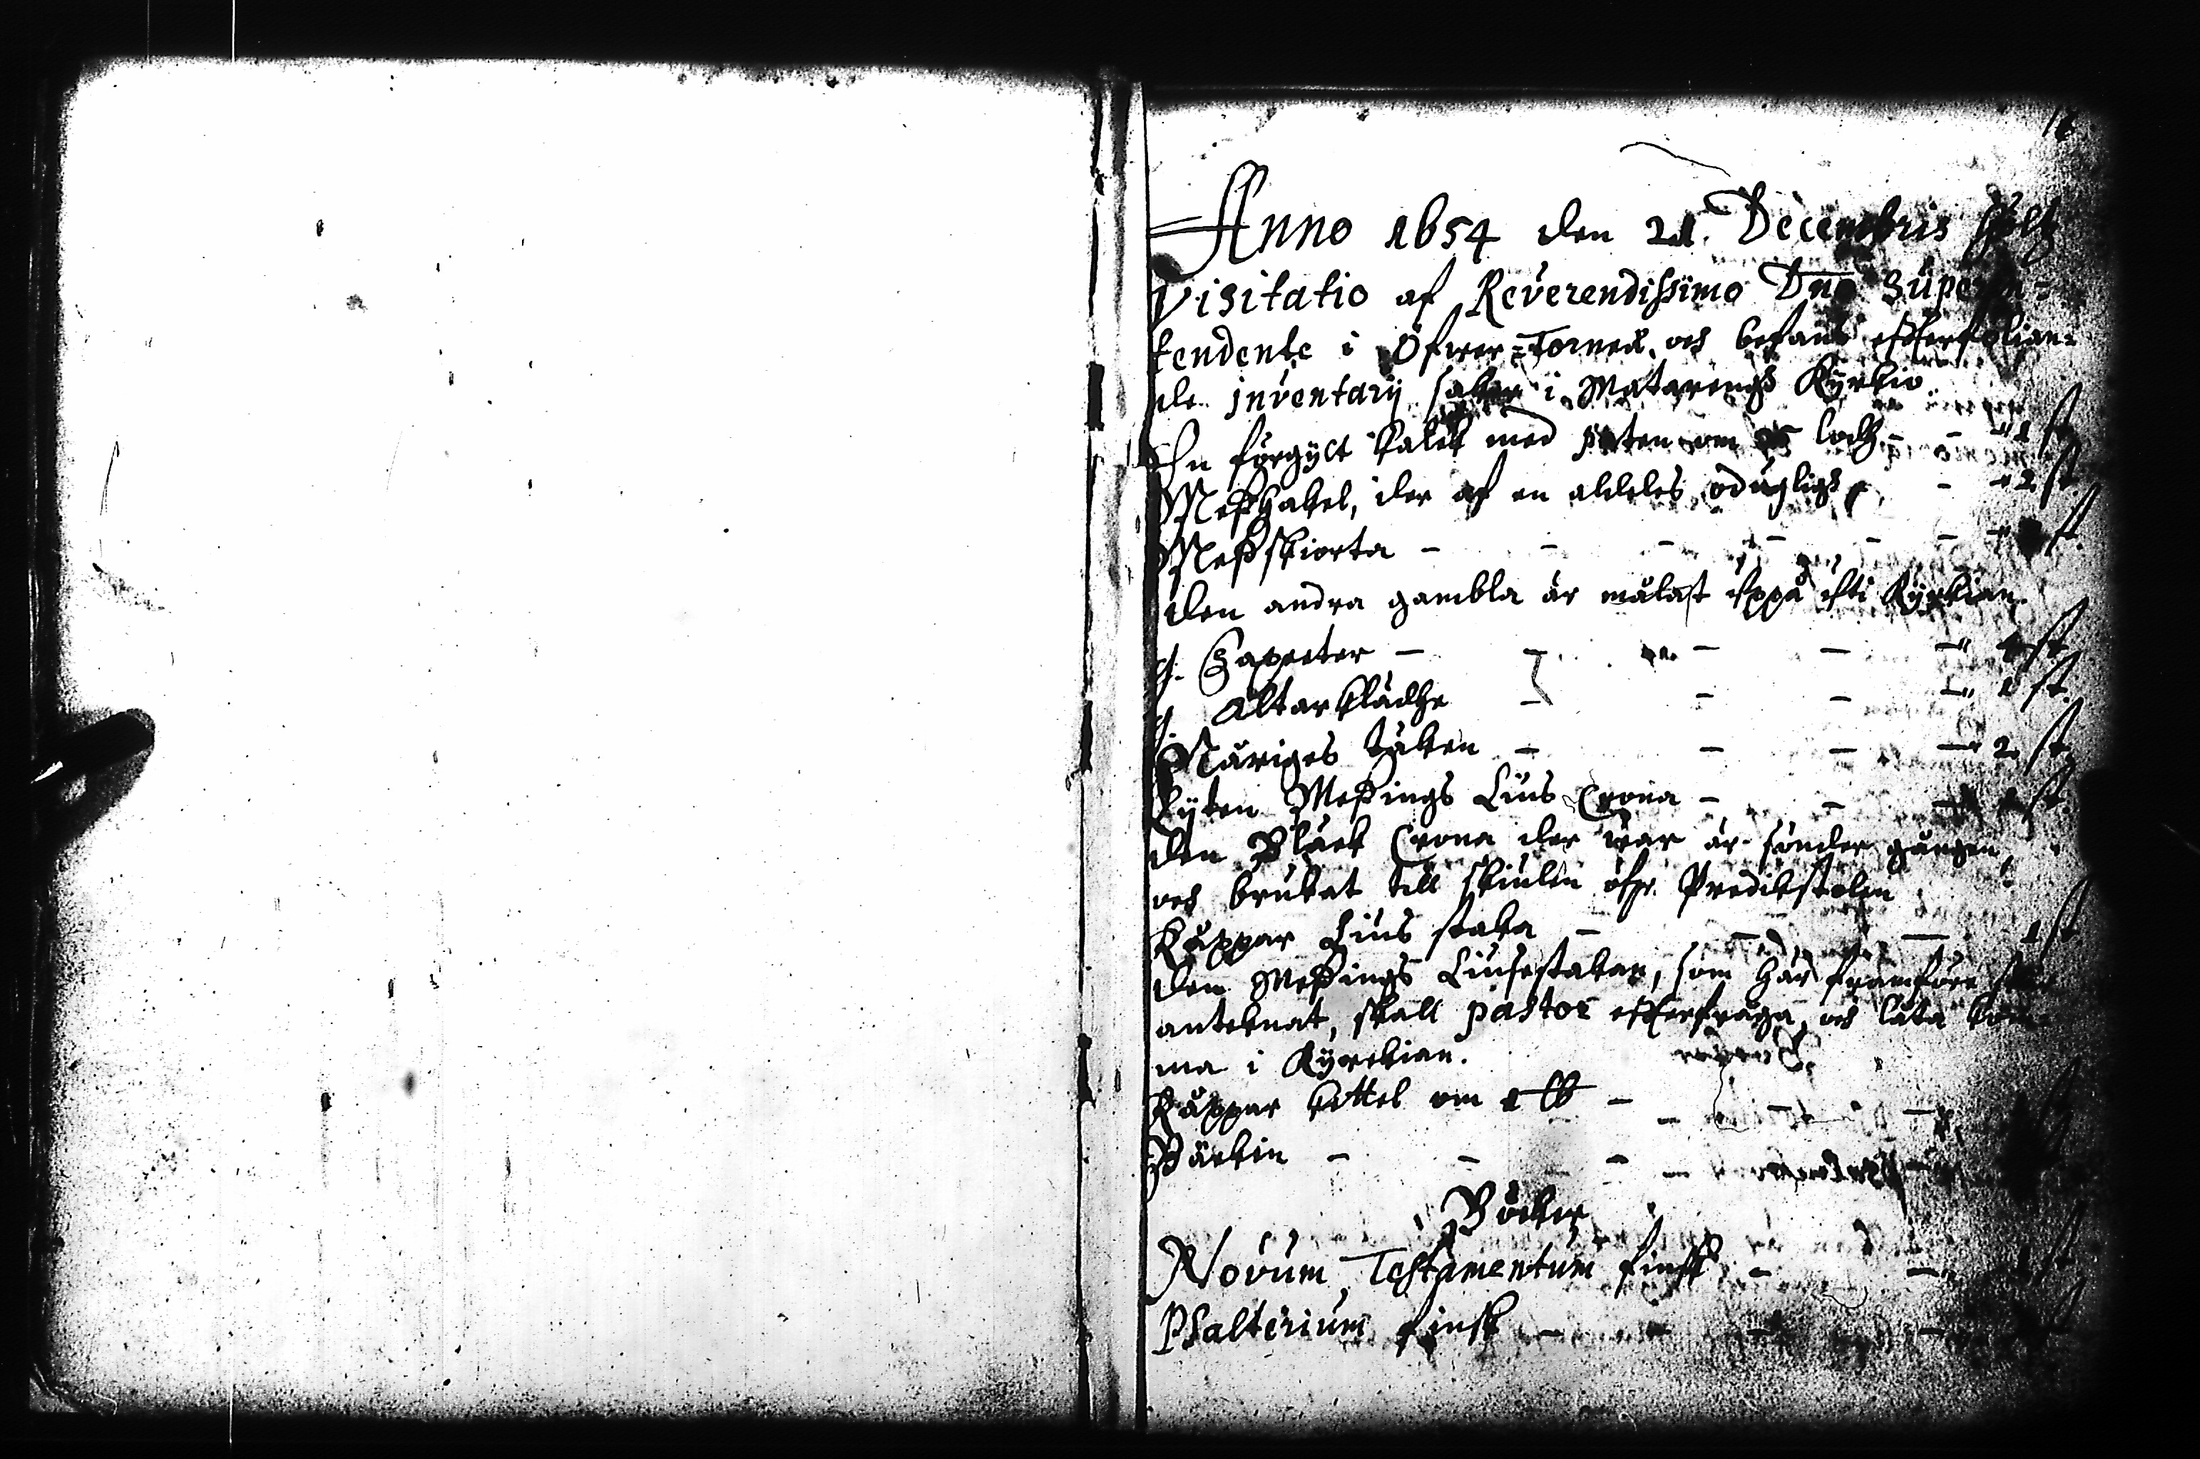 Anno 1654 den 21. Decembris hölts
Visitatio af Reverendissimo Dno Superin-
tendente i Öfwer-Torneå, och befans effterfölian-
de inventarij saker i Matarengs Kyrkio.
En förgylt kalck med paten om lodh - - 1 st
Messhakel, der af en aldeles oduglig - - 2 st
Messskiorta - - - - - - - st
den andra gambla är målat uppå uti Kyrkian.
Tapeeter - - - - - 4 st
Altarklädhe - - - - 1 st
Säriges täken - - - - 2 st
Lyten Messings Lius Crona - - - st
den Bläck Crona der war är sönder gången,
och brukat till skiulen öfwer Predikstolen
Kåppar Lius staka - - - 1 st
den Messings Liusestakan, som här framföre
anteknat, skall pastor effterfråga, och låta kom-
ma i Kyrckian.
Kåppar kettel om 1 ℔ - - - -
Bäckin - - - - -
Böcker
Novum Testamentum finsk - - st
Psalterium finsk - - - -